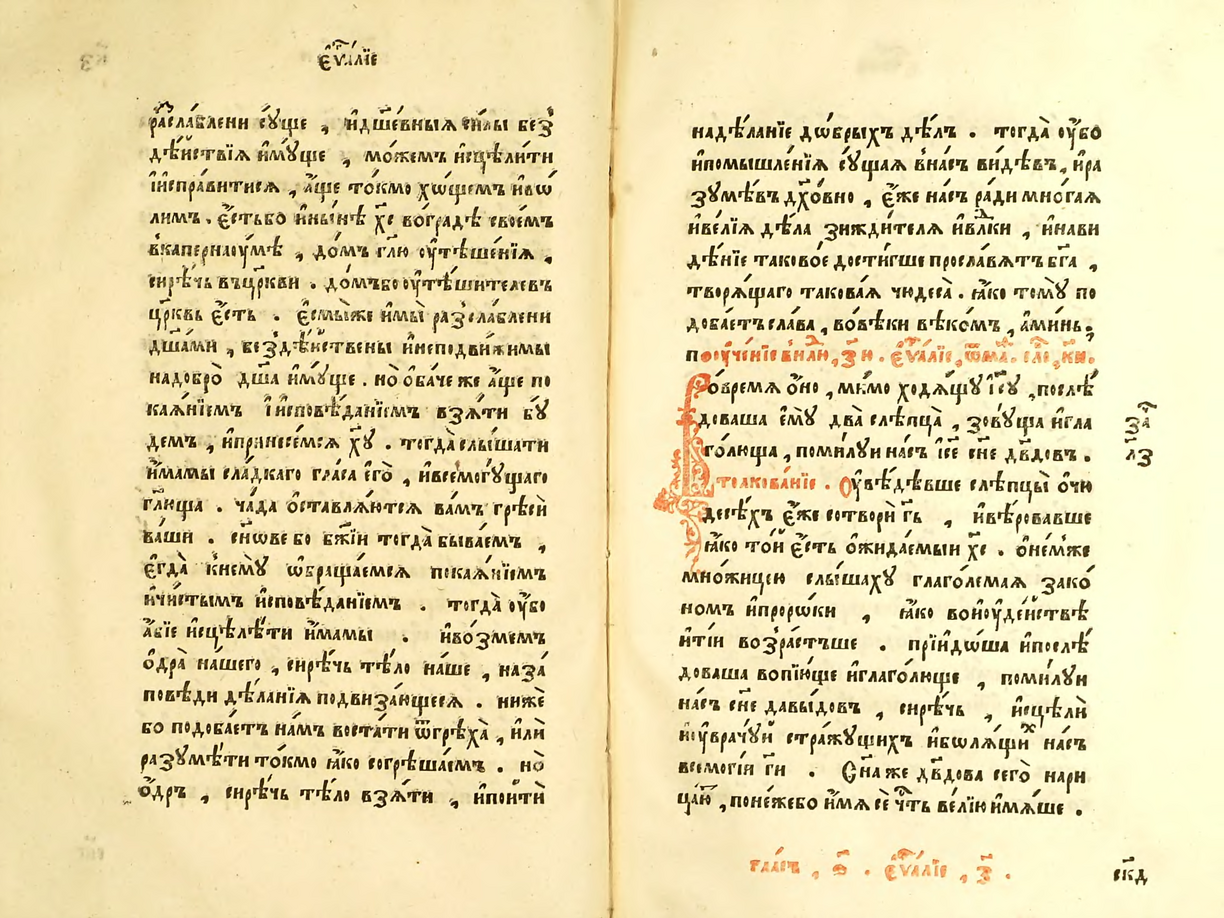 є҆ѵⷢ҇алїе
разслаблени сꙋ́ще , и҆дш҃е́вныѧ си́лы без̾
дѣ́йствїѧ и҆мꙋ́ще , мо́жемъ и҆сцѣли́ти
і҆и҆спра́витисѧ , а҆́ще то́кмо хо́щемъ и҆во
лимъ . є҆́стьбо и҆ны́нѣ хс҃ воградѣ свое́мъ
вкапернаꙋ́мѣ , до́мъ гл҃ю ᲂу҆тѣше́нїѧ ,
сирѣ́чь въцр҃кви . до́мъбо ᲂу҆тѣши́телевъ
цр҃квь є҆́сть . є҆смы́же и҆мы̀ раз̾сла́блени
дш҃а́ми , без̾дѣ́йствены и҆неподви́жимы
надобро̀ дш҃а и҆мꙋ́ще . но ѻ҆ба́че же а҆́ще по
каѧ́нїемъ і҆и҆сповѣ́данїемъ взѧ́ти бꙋ́
демъ , и҆принесе́мсѧ хꙋ҃ . тогда̀ слы́шати
и҆́мамы сла́дкаго гла́са є҆го̀ , и҆всемогꙋ́щаго
гл҃юща . ча́да ѡ҆ставлѧ́ютсѧ ва́мъ грѣсѝ
ва́ши . сы́нове бо бж҃їи тогда̀ быва́емъ ,
є҆гда̀ кнемꙋ̀ ѡ҆браща́емсѧ покаѧ́нїемъ
и҆чи́стымъ и҆сповѣ́данїемъ . тогда̀ ᲂу҆́бо
а҆́бїе и҆сцѣлѣ́ти и҆́мамы . и҆во́змемъ
ѻ҆дра̀ на́шего , сирѣ́чь тѣ́ло на́ше , на за́
повѣди дѣ́ланїѧ подвиза́ющеесѧ . нижѐ
бо подоба́етъ на́мъ воста́ти ѿгрѣха̀ , и҆лѝ
разꙋмѣ́ти то́кмо ꙗ҆́ко согрѣша́емъ . но̀
ѻ҆́дръ , сирѣ́чь тѣ́ло взѧ́ти , и҆поитѝ
надѣ́ланїе до́брыхъ дѣ́лъ . тогда̀ ᲂу҆́бо
и҆помышле́нїѧ сꙋ́щаѧ вна́съ ви́дѣвъ , и҆ра
зꙋмѣ́въ дꙋхо́вно , є҆́же на́съ ра́ди мно́гаѧ
и҆ве́лїѧ дѣ́ла зижди́телѧ и҆влⷣки , и҆нави
дѣ́нїе таково́е дости́гше просла́вѧтъ бг҃а ,
творѧ́щаго такова́ѧ чюдеса̀ . ꙗ҆́ко томꙋ̀ по
доба́етъ сла́ва , вовѣ́ки вѣко́мъ , а҆ми́нь .
поꙋче́нїе внⷣлю , з҃и . є҆ѵⷢ҇алїе , ѿмⷴ҇а . глⷡ҇а , к҃и .
Вовремѧ ѻ҆́но , ми́мо ходѧ́щꙋ і҆сꙋ҃ , послѣ́
доваша є҆мꙋ̀ два̀ слѣпца̀ , зовꙋ́ща и҆гла
го́люща , поми́лꙋи на́съ і҆се҃ сн҃е дв҃довъ .
толкова́нїе . Оу҆вѣ́дѣвше слѣпцы̀ ѻ҆чю
десѣ́хъ є҆́же сотворѝ гд҃ь , и҆вѣ́ровавше
ꙗ҆́ко то́й є҆́сть ѻ҆жида́емыи хс҃ . ѻ҆не́мже
мно́жицею слы́шахꙋ глаго́лемаѧ зако́
номъ и҆проро́ки , ꙗ҆́ко воиꙋде́йствѣ
и҆ті́и возрасть́ше . прїидо́ша и҆послѣ́
доваша вопїю́ще и҆глаго́люще , поми́лꙋи
на́съ сн҃е давы́довъ , сирѣ́чь , и҆сцѣлѝ
и҆ᲂу҆врачꙋ́й стра́жꙋщихъ и҆болѧ́щиⷯ на́съ
всемогі́и гд҃и . Сн҃а же дв҃дова сего̀ нари
ца́ю , поне́жебо и҆́мѧ сѐ чⷭ҇ть ве́лїю и҆мѧ́ше .
за҃ⷱ
л҃з
гла́съ , ѳ҃ . є҆ѵⷢ҇алїе , з҃ .
скд